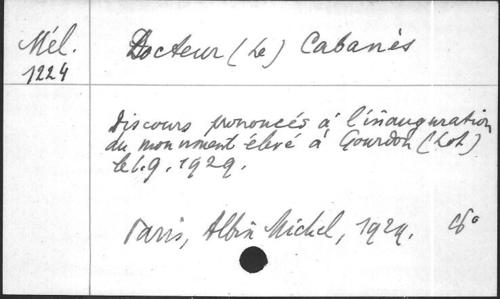 Mél.
1224
Docteur (Le) Cabanès
Discours prononcés à l'inauguration
du monument élevé à Gourdon (Lot)
le 1.9.1929.
Paris, Albin Michel, 1929. 8°